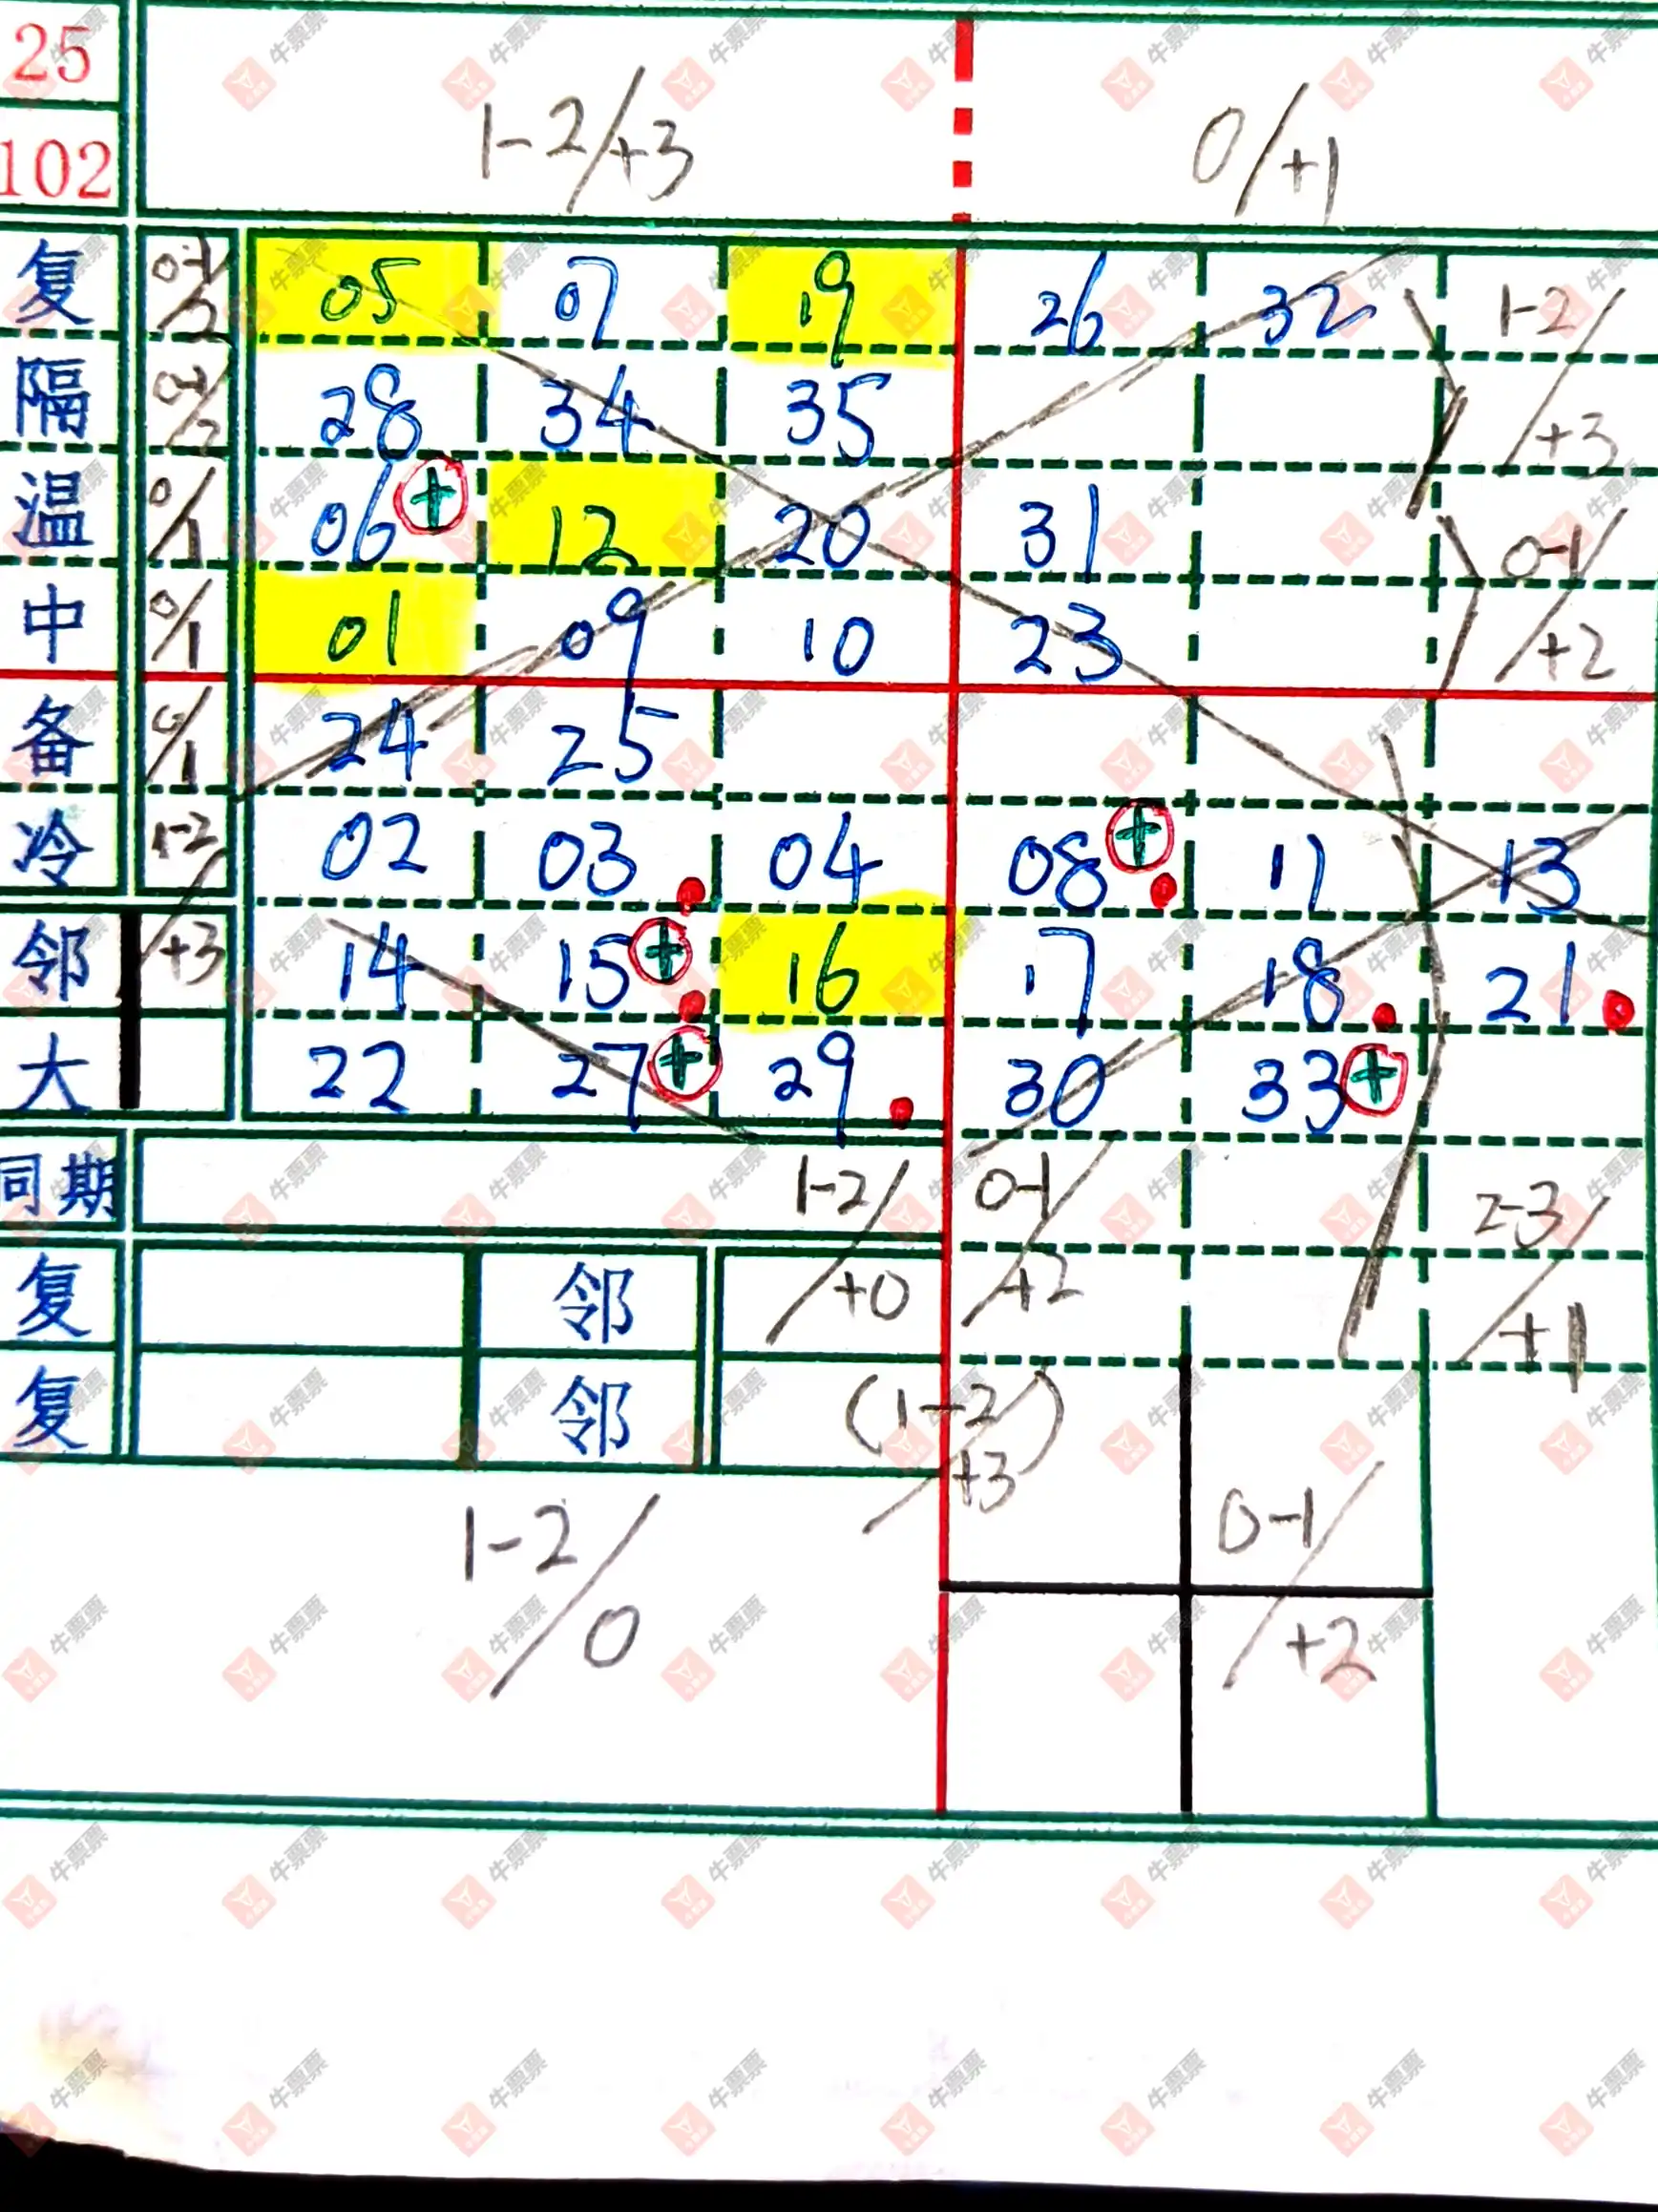 25
1-2/+3 0/+1
102
复 0-1/2 05 07 19 26 32 1-2/
隔 28 34 35 +3
温 0/1 06 + 12 20 31 0-1/
中 0/1 01 09 10 23 +2
备 0/1 24 25
冷 1-2/ 02 03 04 08 + 11 13
邻 +3 14 15 + 16 17 18 21
大 22 27 + 29 30 33 +
同期 1-2/ 0-1/ 2-3/
复 邻 +0 +2 +1
复 邻 (1-2/)
+3
1-2/0 0-1/+2
牛票票